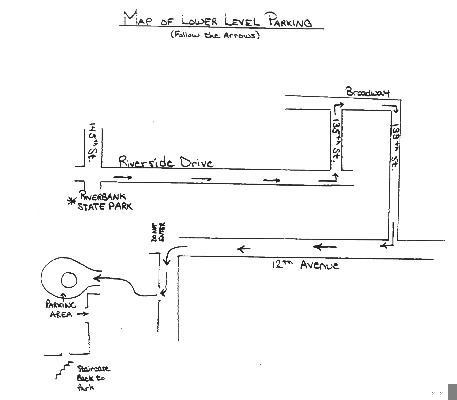 Map of Lower Level Parking
(Follow the Arrows)
Broadway
145th St.
135th St.
St.
Riverside Drive
* RIVERBANK
STATE PARK
DO NOT
ENTER
12th Avenue
PARKING
AREA
Staircase
Back to
Park